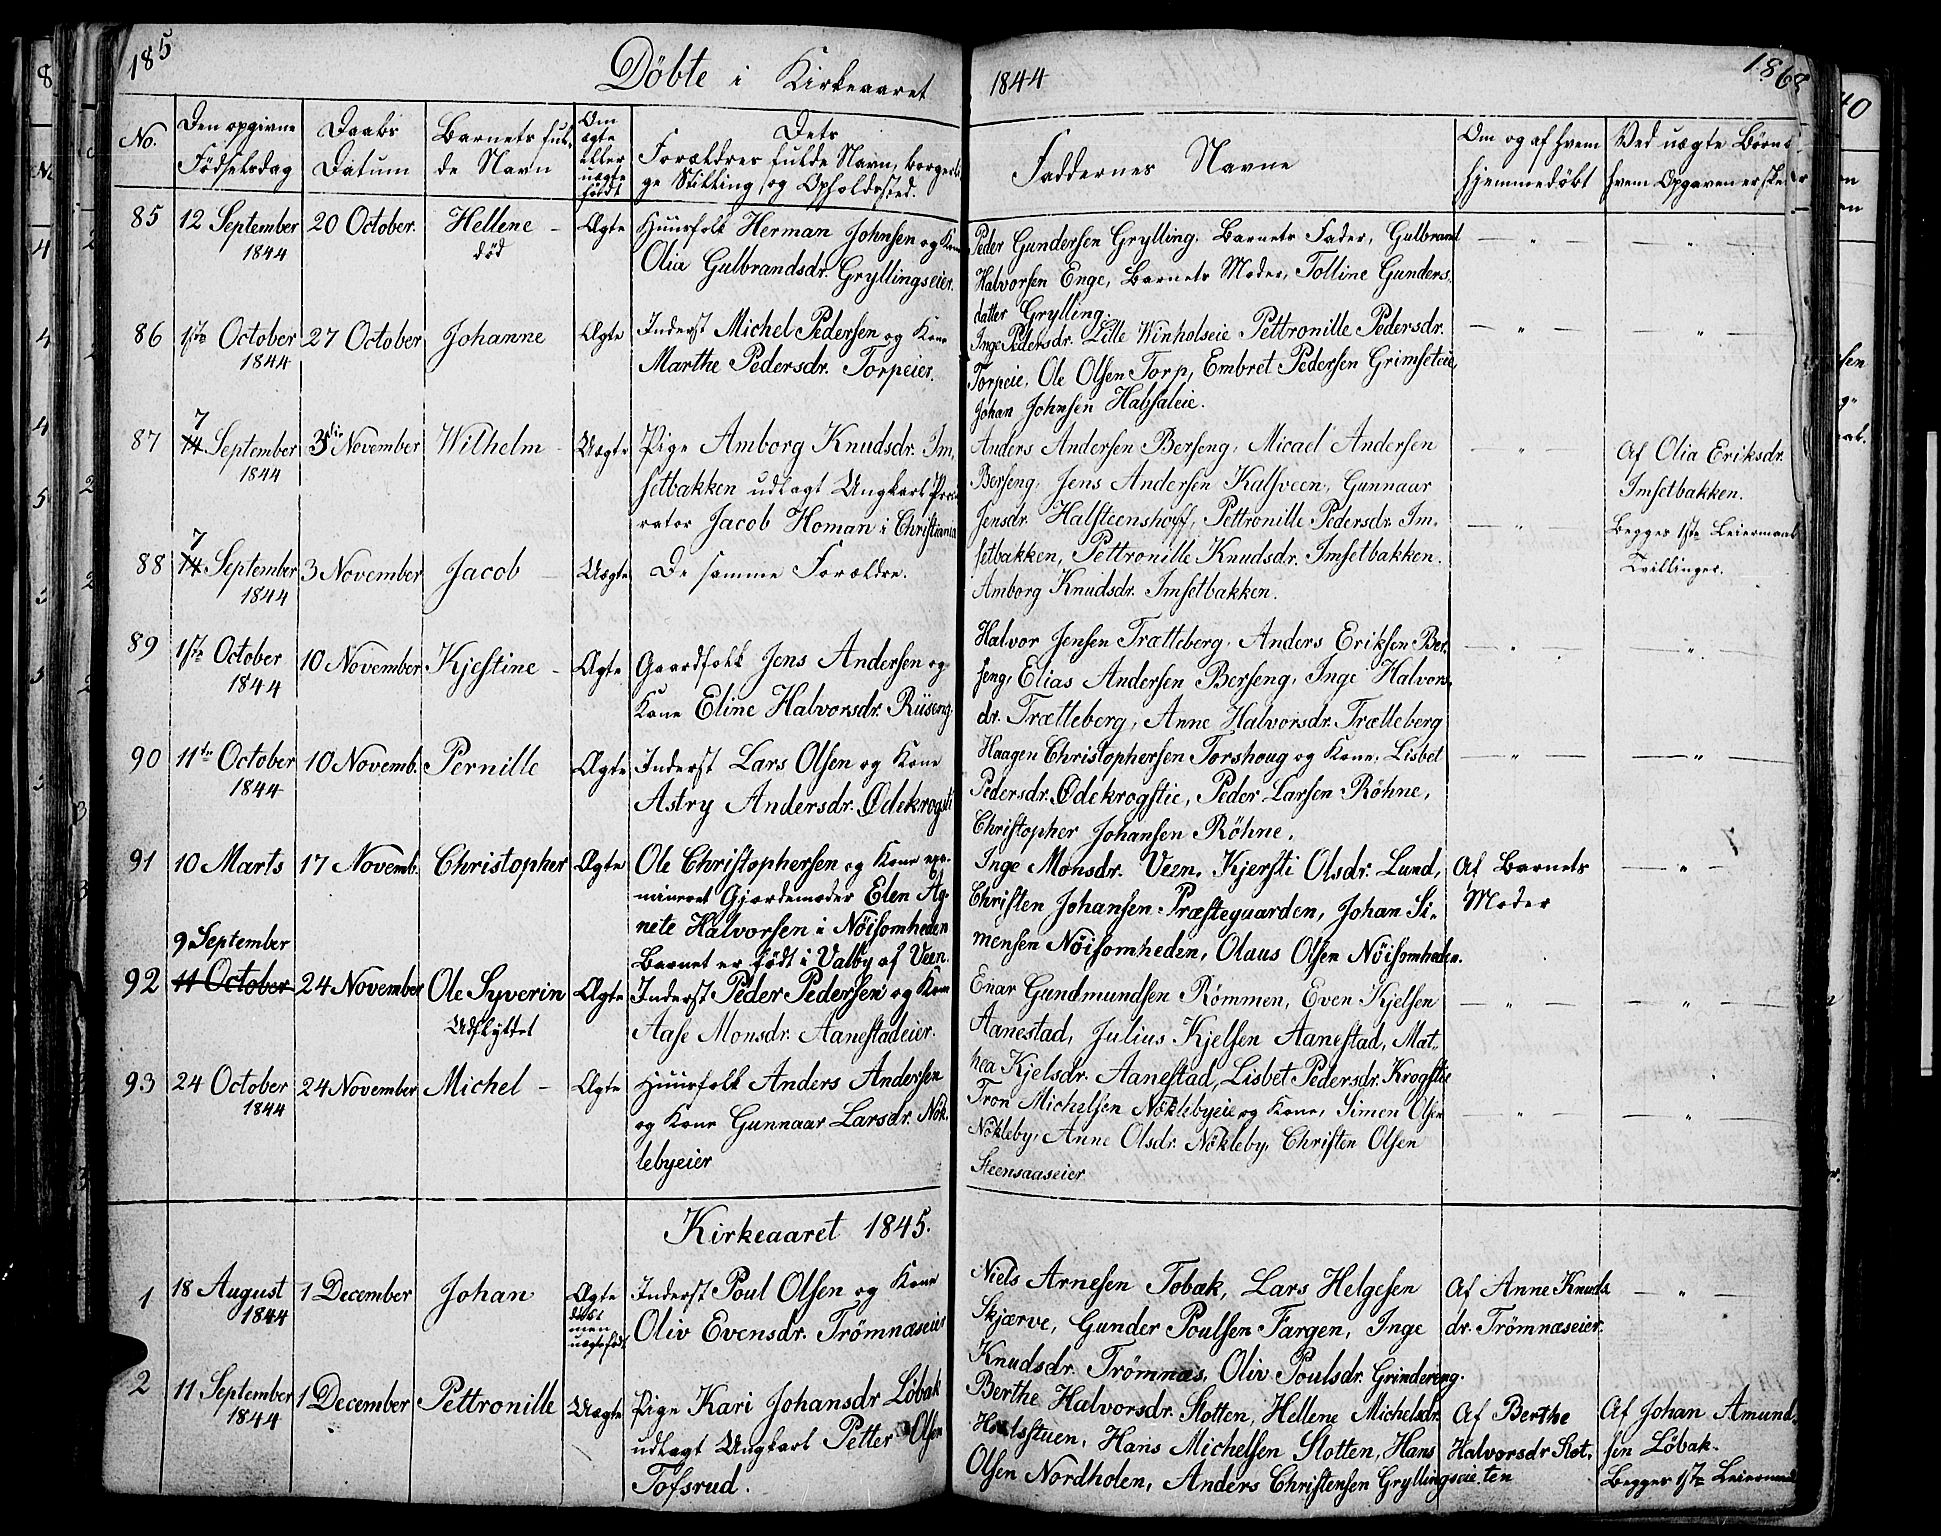 185
Döbte i Kirkeaaret 1844
186
No.
Den opgivne
Födselsdag
Daabs
Datum
Barnets ful-
de Navn
Om
ægte
eller
uægte
födt
Dets
Forældres fulde Navn, borgerli-
ge Stilling og Opholdssted.
Faddernes Navne
Om og af hvem
hjemmedöbt
Ved uægte Börn:
hvem Opgaven er skeet
85
12 September
1844
20 October.
Hellene -
död
Ægte
Huusfolk Herman Johnsen og Kone
Olia Gulbrandsdr. Gryllingseier.
Peder Gundersen Grylling, Barnets Fader, Gulbrand
Halvorsen Enge, Barnets Moder, Tolline Gunders-
datter Grylling.
— „ —
— „ —
86
1ste October
1844
27 October
Johanne
Ægte
Inderst Michel Pedersen og Kone
Marthe Pedersdr. Torpeier.
Inge Pedersdr. Lille Winholseie Pettronille Pedersdr.
Torpeie, Ole Olsen Torp, Embret Pedersen Grimseteie,
Johan Johnsen Habsaleie.
— „ —
— „ —
87
7
14 September
1844
3die November
Wilhelm -
Uægte
Pige Amborg Knudsdr. Im-
setbakken udlagt Ungkarl Pro-
rator Jacob Homan i Christiania
Anders Andersen Berseng, Micael Andersen
Berseng, Jens Andersen Kalsveen, Gunnaar
Jensdr. Halsteenshoff, Pettronille Pedersdr. Im-
setbakken, Pettronille Knudsdr. Imsetbakken.
Amborg Knudsdr. Imsetbakken.
— „ —
Af Olia Eriksdr.
Imsetbakken.
Begges 1ste Leiermaal
Tvillinger.
88
7
14 September
1844
3 November
Jacob -
Uægte
De samme Forældre.
— „ —
89
1ste October
1844
10 November
Kjestine -
Ægte
Gaardfolk Jens Andersen og
Kone Eline Halvorsdr. Riiseng.
Halvor Jensen Trætteberg, Anders Eriksen Ber-
seng, Elias Andersen Berseng, Inge Halvors-
dr. Trætteberg, Anne Halvorsdr. Trætteberg
— „ —
— „ —
90
11te October
1844
10 Novemb.
Pernille
Ægte
Inderst Lars Olsen og Kone
Astry Andersdr. Ödekrogsti
Haagen Christophersen Torshoug og Kone, Lisbet
Pedersdr. Ödekrogstie, Peder Larsen Röhne,
Christopher Johansen Röhne.
— „ —
— „ —
91
10 Marts
17 Novemb.
Christopher
Ægte
Ole Christophersen og Kone exa-
mineret Gjordemoder Elen Ag-
nete Halvorsen i Nöisomheden
Barnet er födt i Valby af Veen.
Inge Monsdr. Veen, Kjersti Olsdr. Lund,
Christen Johansen Præsteguarden, Johan Si-
mensen Nöisomheden, Olaus Olsen Nöisomheden.
Af Barnets
Moder
— „ —
92
9 September
11 October
24 November
Ole Syverin
Udflyttet
Ægte
Inderst Peder Pedersen og Kone
Aase Monsdr. Aanestadeier.
Enar Gundmundsen Römmen, Even Kjelsen
Aanestad, Julius Kjelsen Aanestad, Mat-
hea Kjelsdr. Aanestad, Lisbet Pedersdr. Krogstie
— „ —
— „ —
93
24 October
1844
24 November
Michel -
Ægte
Huusfolk Anders Andersen
og Kone Gunnaar Larsdr. Nök-
lebyeier
Tron Michelsen Nöklebyeie og Kone, Simen Olsen
Nökleby, Anne Olsdr. Nökleby, Christen Olsen
Steensaaseier
— „ —
— „ —
Kirkeaaret 1845.
1
18 August
1844
1 December
Johan
Ægte
men
uægtefödt
Inderst Poul Olsen og Kone
Oliv Evensdr. Trömnæseier
Niels Arnesen Tobæk, Lars Helgesen
Skjærve, Gunder Poulsen Fargen, Inge
Knudsdr. Trömnæs, Oliv Poulsdr. Grindereng.
Af Anne Knuds-
dr. Trömnæseier.
— „ —
2
11 September
1844
1 December
Pettronille
Uægte
Pige Kari Johansdr Löbak
udlagt Ungkarl Petter Olsen
Tofsrud.
Berthe Halvorsdr. Slotten, Hellene Michelsdr.
Holsstuen, Hans Michelsen Slotten, Hans
Olsen Nordholen, Anders Christensen Gryllingseie
Af Berthe
Halvorsdr Slot-
ten
Af Johan Amund-
sen Löbak.
Begges 1ste Leiermaal